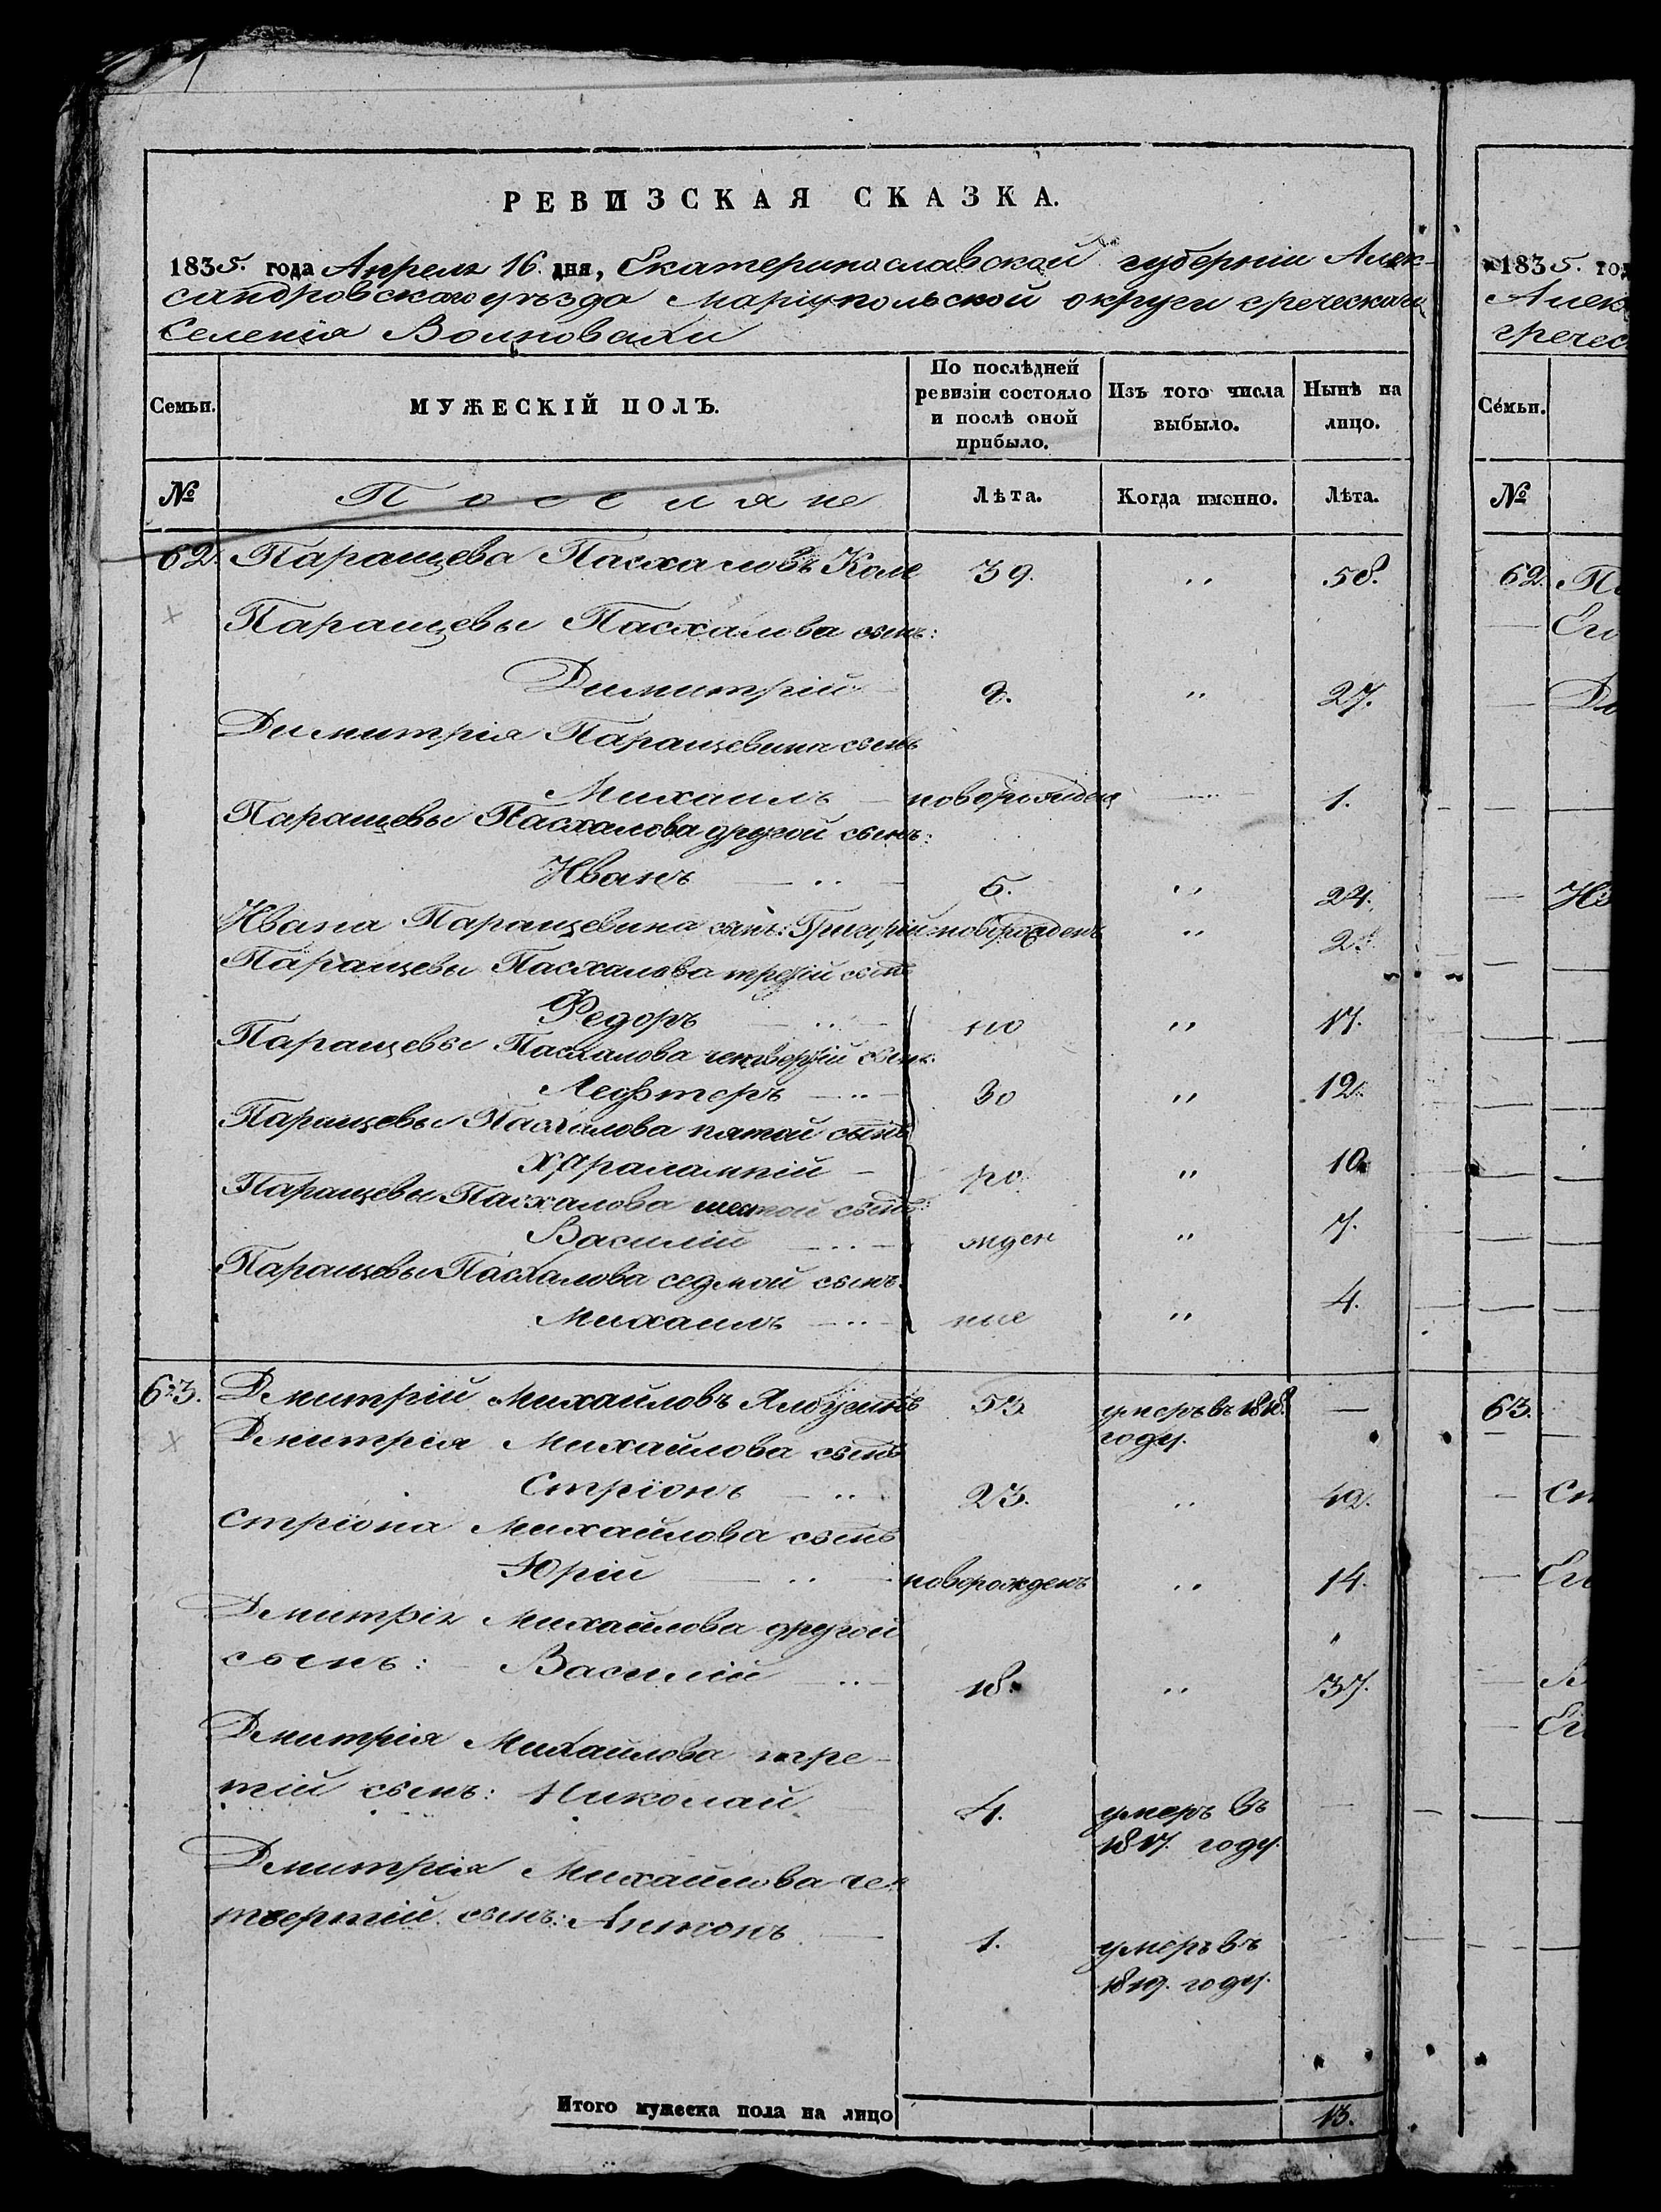 РЕВИЗСКАЯ СКАЗКА.
1835. года Апреля 16. дня, Екатеринославской губерніи Алек-
сандровскаго уѣзда Мариупольской округи греческаго
Селенія Волновахи
Семьи.
МУЖЕСКІЙ ПОЛЪ.
По послѣдней ревизіи состояло и послѣ оной прибыло.
Изъ того числа выбыло.
Нынѣ на лицо.
№
Поселяне
Лѣта.
Когда именно.
Лѣта.
62. Паращева Пасхаловъ 39. „ 58.
Паращевы Пасхалова сынъ:
Димитрій 8. „ 27.
Димитрія Паращевина сынъ
Михаилъ новорожденъ 1.
Паращевы Пасхалова другой сынъ:
Иванъ 5. „ 24.
Ивана Паращевина сынъ: Григорій новорожденъ „ 2.
Паращевы Пасхалова третій сынъ
Федоръ но „ 17.
Паращевы Пасхалова четвертій сынъ
Лефтеръ во „ 12.
Паращевы Пасхалова пятой сынъ
Харалампій ро „ 10.
Паращевы Пасхалова шестой сынъ:
Василій жден „ 7.
Паращевы Пасхалова седмой сынъ.
Михаилъ ные „ 4.
63. Дмитрій Михайловъ 53. умеръ въ 1818. —
году.
Дмитрія Михайлова сынъ
Стріонъ 23. „ 42.
Стріона Михайлова сынъ
Юрій новорожденъ „ 14.
Дмитрія Михайлова другой
сынъ: Василій 18. „ 37.
Дмитрія Михайлова тре-
тій сынъ: Николай 4. умеръ въ —
1817. году.
Дмитрія Михайлова че-
твертій сынъ: Антонъ 1. умеръ въ —
1819. году.
Итого мужеска пола на лицо 13.
1835. го
Алек
гречес
Семьи.
№
62.
63.